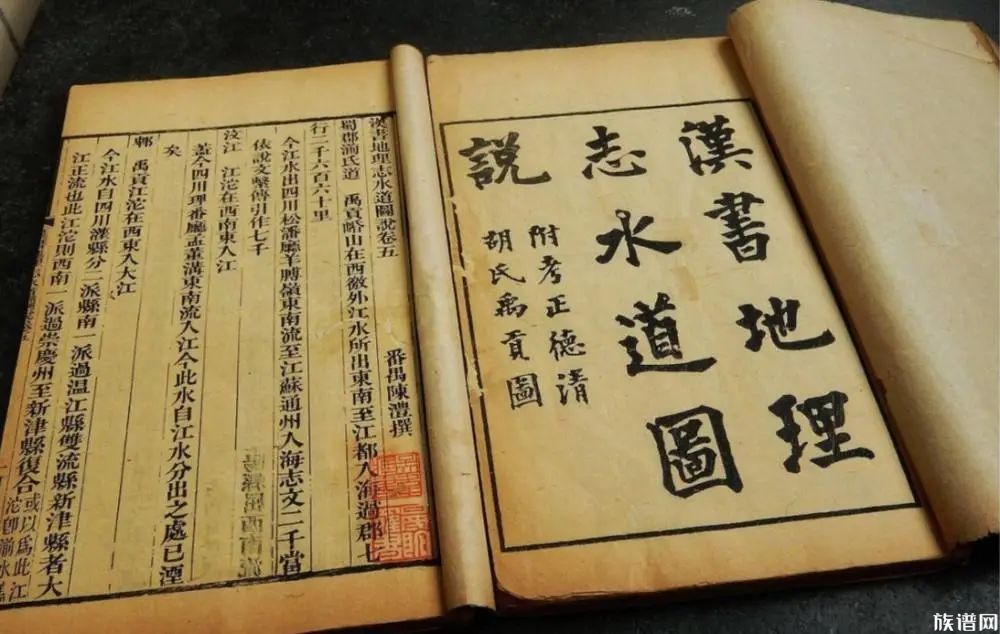 漢書地理
志水道圖
說
附考正德清
胡氏禹貢圖
漢書地理志水道圖說卷五
番禺陳澧撰
蜀郡湔氐道 禹貢崏山在西徼外江水所出東南至江都入海過郡七
行二千六百六十里
今江水出四川松潘廳羊膊嶺東南流至江蘇通州入海志文二千當
依說文繫傳引作七千
汶江 江沱在西南東入江
蓋今四川理番廳孟董溝東南流入江今此水自江水分出之處已湮
矣
郫 禹貢江沱在西東入大江
今江水自四川灌縣分二派縣南一派過温江縣雙流縣新津縣者大
江正流也此江沱則西南一派過崇慶州至新津縣復合或以爲此江
沱卽湔水
族谱网